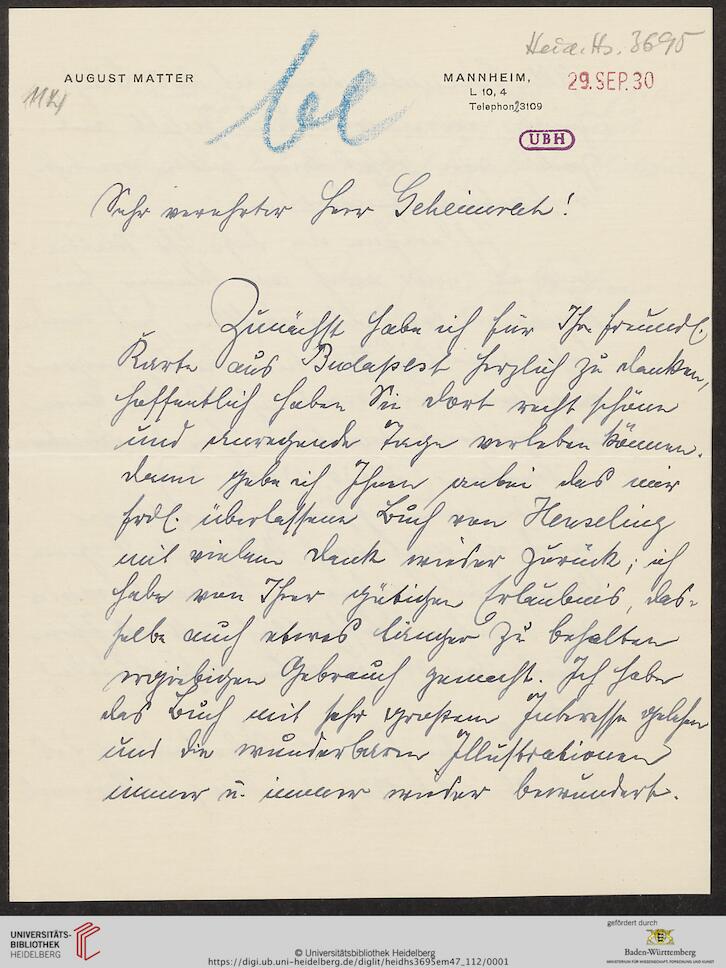 Heid. Hs. 3695
AUGUST MATTER
MANNHEIM,
29. SEP. 30
L 10, 4
Telephon 23109
112/1
be
UBH
Sehr verehrter Herr Geheimrath!
Zunächst habe ich für Ihre freundl.
Karte aus Budapest herzlich zu danken,
hoffentlich haben Sie dort recht schöne
und anregende Tage verleben können.
Dann gebe ich Ihnen anbei das mir
frdl. überlassene Buch von Henseling
mit vielem Dank wieder zurück; ich
habe von Ihrer gütigen Erlaubnis, das-
selbe auch etwas länger zu behalten
ergiebigen Gebrauch gemacht. Ich habe
das Buch mit sehr großem Interesse gelesen
und die wunderbaren Illustrationen
immer u. immer wieder bewundert.
UNIVERSITÄTS-
BIBLIOTHEK
HEIDELBERG
© Universitätsbibliothek Heidelberg
https://digi.ub.uni-heidelberg.de/diglit/heidhs3695em47_112/0001
gefördert durch
Baden-Württemberg
MINISTERIUM FÜR WISSENSCHAFT, FORSCHUNG UND KUNST